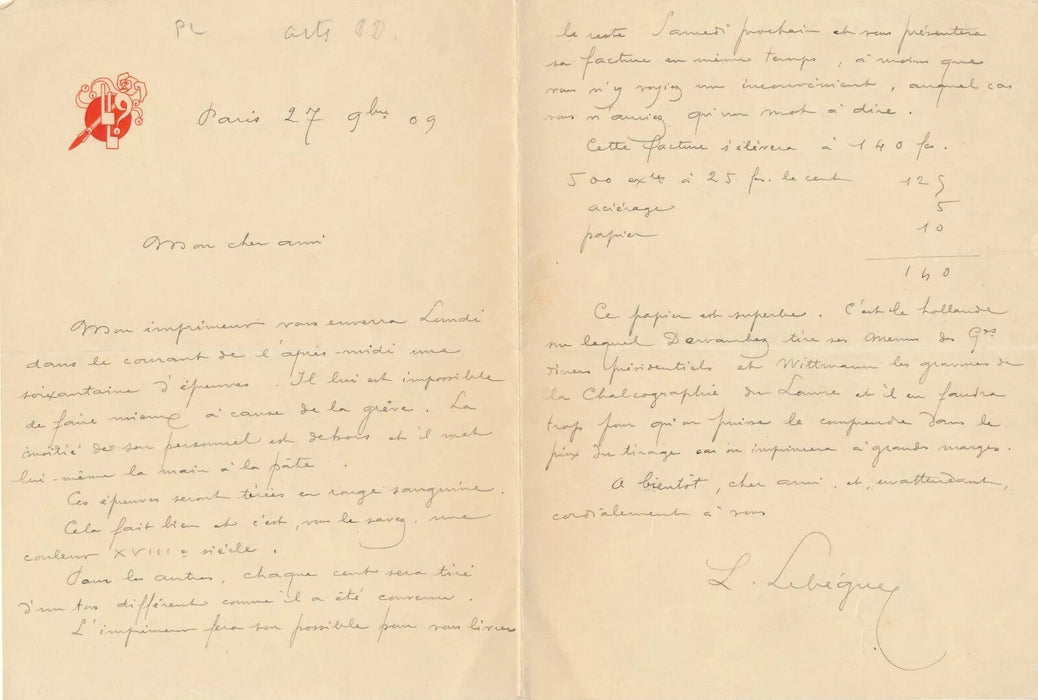 PL arts DD.
Paris 27 9bre 09
Mon cher ami
Mon imprimeur vous enverra Lundi
dans le courant de l'après-midi une
soixantaine d'épreuves. Il lui est impossible
de faire mieux à cause de la grève. La
moitié de son personnel est dehors et il met
lui-même la main à la pâte.
Ces épreuves seront tirées en rouge sanguine.
Cela fait bien et c'est, vous le savez, une
couleur XVIIIe siècle.
Pour les autres, chaque cent sera tiré
d'un ton différent comme il a été convenu.
L'imprimeur fera son possible pour vous livrer
le reste Samedi prochain et vous présentera
sa facture en même temps, à moins que
vous n'y voyiez un inconvénient, auquel cas
vous n'auriez qu'un mot à dire.
Cette facture s'élèvera à 140 fcs.
500 exres à 25 frs. le cent 125
aciérage 5
papier 10
140
Ce papier est superbe. C'est le hollande
sur lequel Devambez tire ses menus des Gds
diners présidentiels et Wittmann les gravures de
la Chalcographie du Louvre et il en faudra
trop pour qu'on puisse le comprendre dans le
prix du tirage car on imprimera à grandes marges.
A bientôt, cher ami, et, en attendant,
cordialement à vous
L. Lebègue